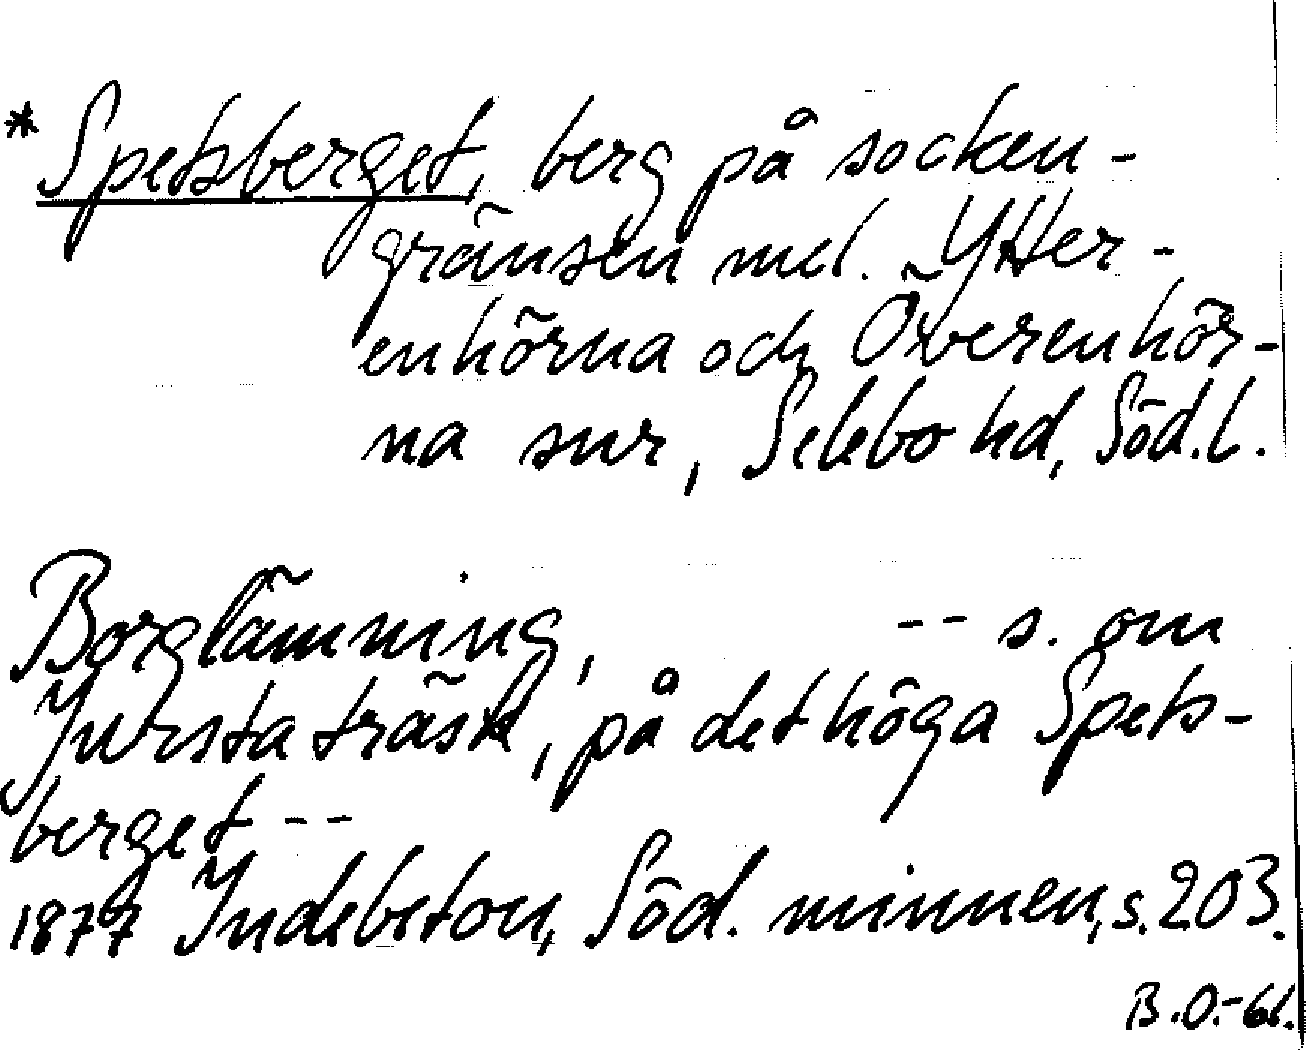 * Spetsberget, berg på socken-
gränsen mel. Ytter-
enhörna och Överenhör-
na snr, Selebo hd, Söd.l.
Borglämning, -- s. om
Jursta träsk, på det höga Spets-
berget --
1877 Indebetou, Söd. minnen, s. 203.
B.O.-61.